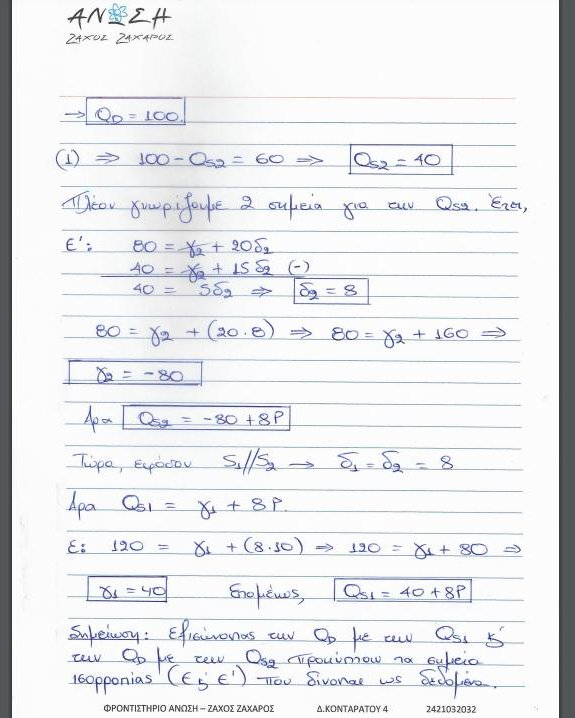 ΑΝΩΣΗ
ΖΑΧΟΣ ΖΑΧΑΡΟΣ
→ Q_D = 100.
(1) ⇒ 100 - Q_S2 = 60 ⇒ Q_S2 = 40
Πλέον γνωρίζουμε 2 σημεία για την Q_S2. Έτσι,
Ε': 80 = γ_2 + 20δ_2
40 = γ_2 + 15δ_2 (-)
40 = 5δ_2 ⇒ δ_2 = 8
80 = γ_2 + (20·8) ⇒ 80 = γ_2 + 160 ⇒
γ_2 = -80
Άρα Q_S2 = -80 + 8P
Τώρα, εφόσον S_1//S_2 → δ_1 = δ_2 = 8
Άρα Q_S1 = γ_1 + 8P.
Ε: 120 = γ_1 + (8·10) ⇒ 120 = γ_1 + 80 ⇒
γ_1 = 40 Επομένως, Q_S1 = 40 + 8P
Σημείωση: Εξισώνοντας την Q_D με την Q_S1 &
την Q_D με την Q_S2 προκύπτουν τα σημεία
ισορροπίας (Ε & Ε') που δίνονται ως δεδομένα.
ΦΡΟΝΤΙΣΤΗΡΙΟ ΑΝΩΣΗ – ΖΑΧΟΣ ΖΑΧΑΡΟΣ Δ.ΚΟΝΤΑΡΑΤΟΥ 4 2421032032